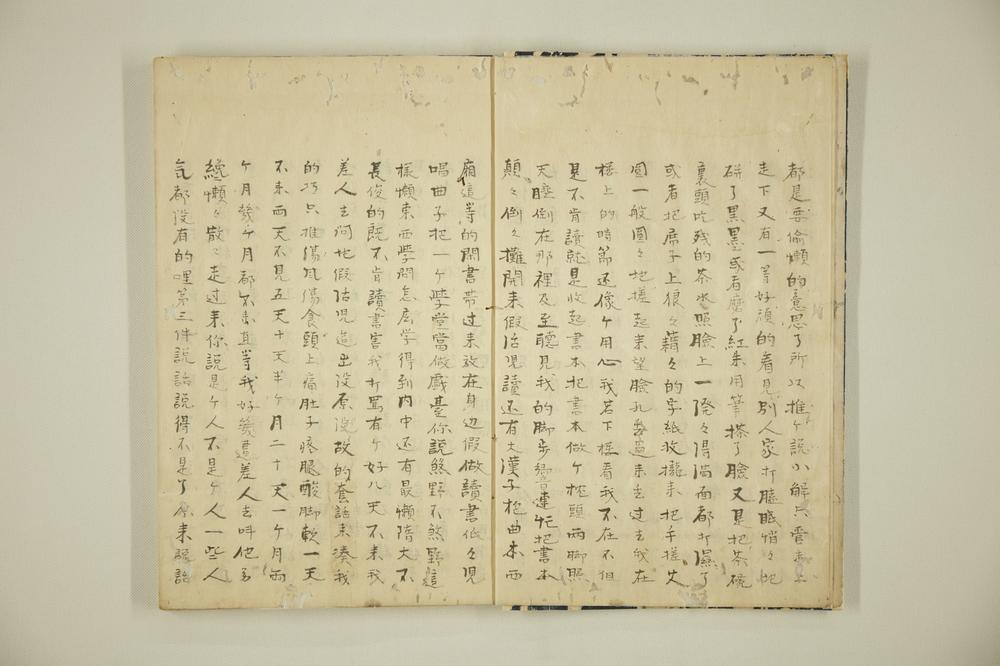 都是要偷懶的意思了所以推ケ説小解只管走上
走下又有一等好頑的看見別人家打瞌睡悄々地
研了黒墨或者磨了紅朱用筆搽了臉又是把茶碗
裏頭吃残的茶水照臉上一潑々得満面都打濕了
或者把席子上狠々藉々的字紙收攏来把手搓丈
圓一般圓々地搓起来望臉孔丟過来去過去我在
樓上的時節还像ケ用心我若下樓看我不在不但
是不肯讀就是收起書本把書本做ケ枕頭両脚照
天睡倒在那裡及至聽見我的脚歩響連忙把書本
顛々倒々攤開来假伀児讀还有大漢子抱曲本西
廂這等的閑書帯过来放在身辺假做讀書低々児
唱曲子把一ケ學堂當做戲臺你説煞野不煞野這
樣懶東西學問怎広学得到内中还有最懶惰大不
長俊的既不肯讀書害我打罵有ケ好几天不来我
差人去问他假估児造出没原没故的套話来湊我
的巧只推傷風傷食頭上痛肚子疼腿酸脚軟一天
不来両天不見五天十天半ケ月二十天一ケ月両
ケ月幾ケ月都不来直等我好幾遭差人去呌他方
纔懶々散々走过来你説是ケ人不是ケ人一些人
気都没有的哩第三件説話説得不是了原来説話